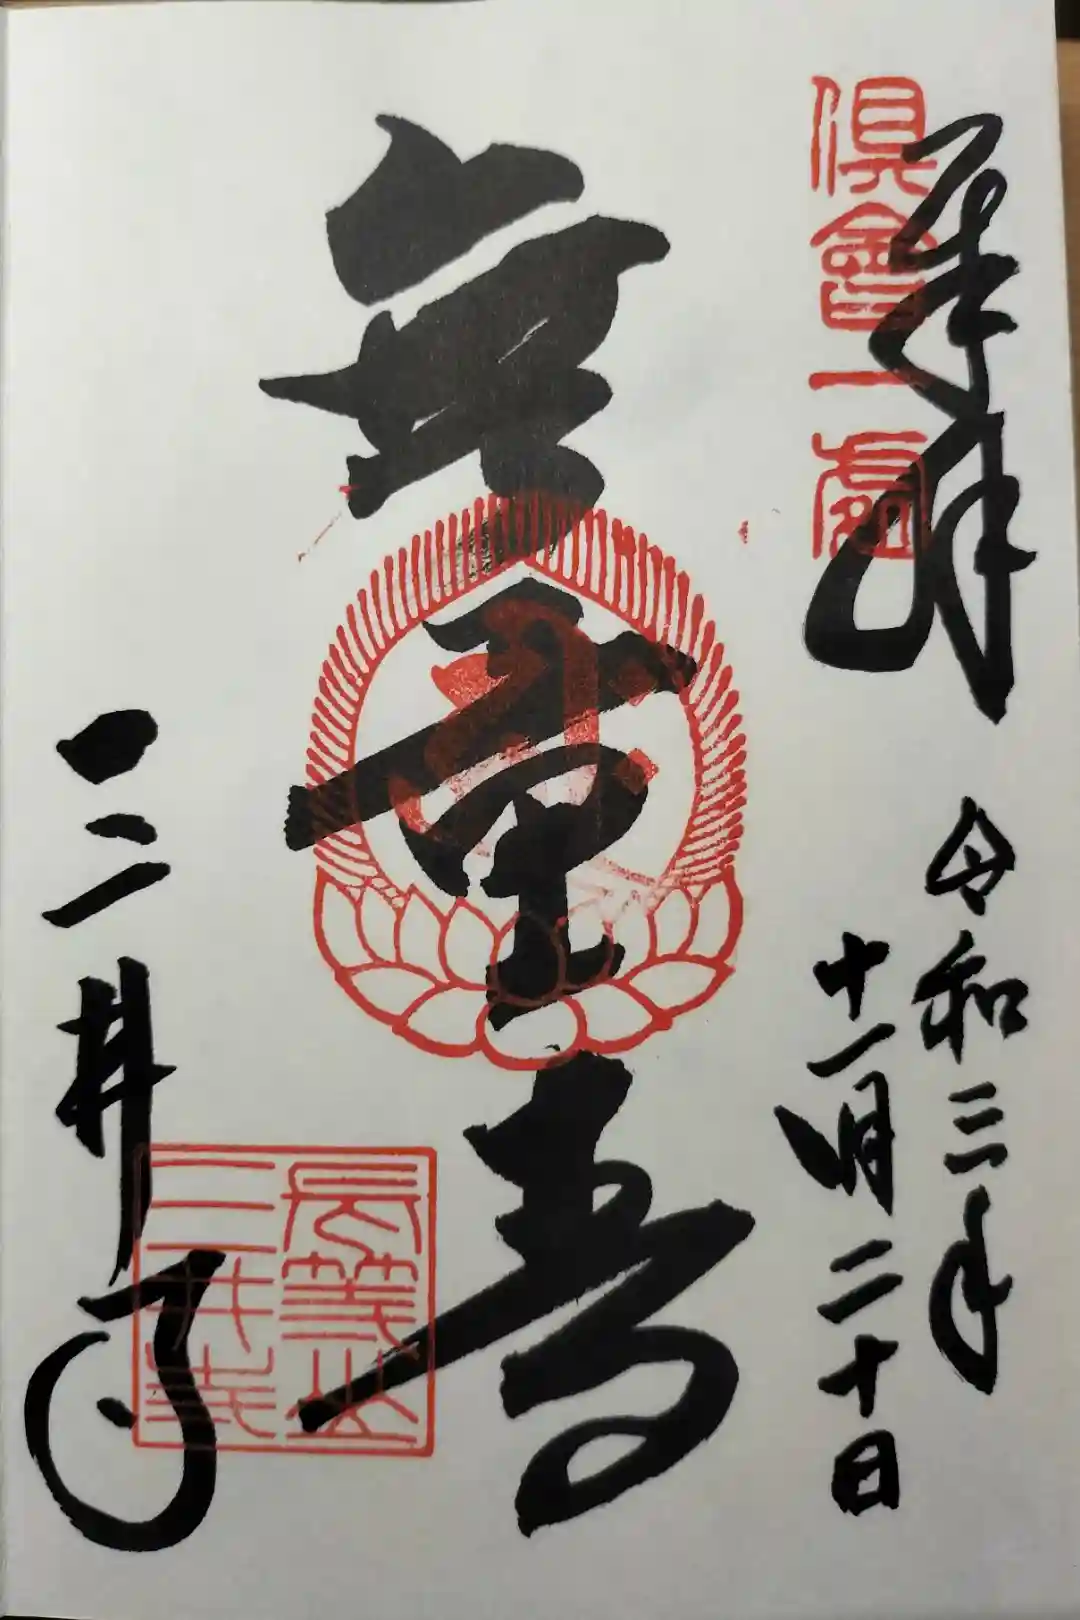 奉拝
俱會一處
令和三年
十一月二十日
無量寿
三井寺
長等山
三井寺